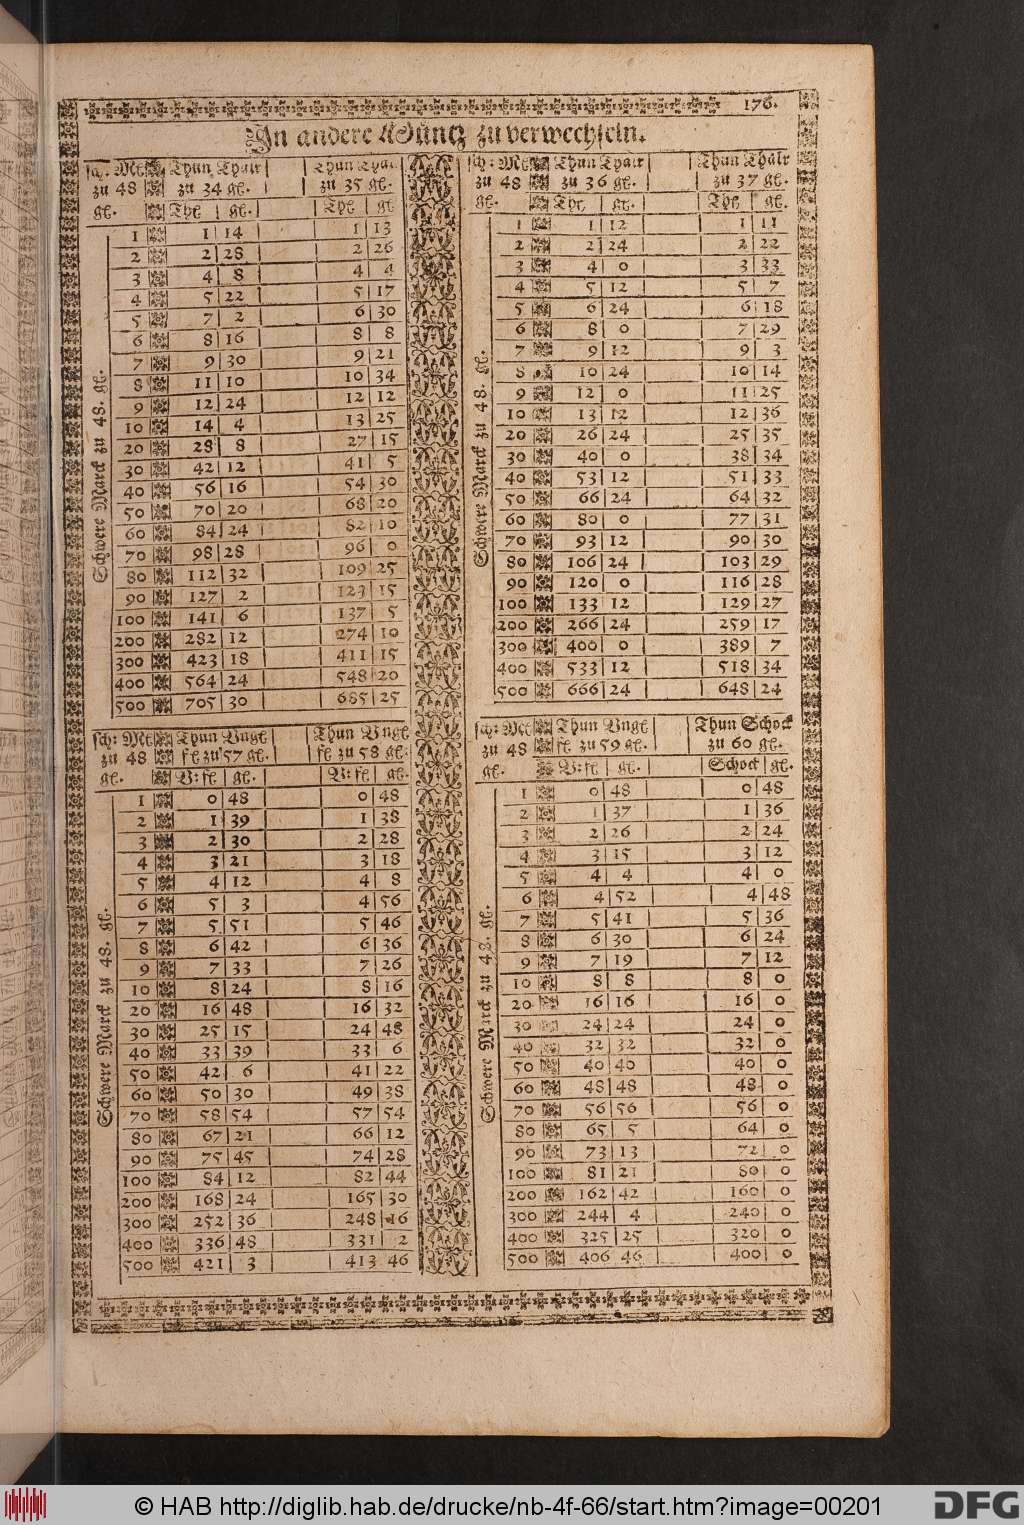 176.
In andere Müntz zu verwechseln.
sch: Mt. Thun Thalr Thun Thalr
zu 48 zu 34 gl. zu 35 gl.
gl. Thl gl. Thl gl
Schwere Marck zu 48. gl.
1 1 14 1 13
2 2 28 2 26
3 4 8 4 4
4 5 22 5 17
5 7 2 6 30
6 8 16 8 8
7 9 30 9 21
8 11 10 10 34
9 12 24 12 12
10 14 4 13 25
20 28 8 27 15
30 42 12 41 5
40 56 16 54 30
50 70 20 68 20
60 84 24 82 10
70 98 28 96 0
80 112 32 109 25
90 127 2 123 15
100 141 6 137 5
200 282 12 274 10
300 423 18 411 15
400 564 24 548 20
500 705 30 685 25
sch: Mt. Thun Thalr Thun Thalr
zu 48 zu 36 gl. zu 37 gl.
gl. Thl gl. Thl gl.
Schwere Marck zu 48. gl.
1 1 12 1 11
2 2 24 2 22
3 4 0 3 33
4 5 12 5 7
5 6 24 6 18
6 8 0 7 29
7 9 12 9 3
8 10 24 10 14
9 12 0 11 25
10 13 12 12 36
20 26 24 25 35
30 40 0 38 34
40 53 12 51 33
50 66 24 64 32
60 80 0 77 31
70 93 12 90 30
80 106 24 103 29
90 120 0 116 28
100 133 12 129 27
200 266 24 259 17
300 400 0 389 7
400 533 12 518 34
500 666 24 648 24
sch: Mt. Thun Vngl Thun Vngl
zu 48 fl zu 57 gl. fl zu 58 gl.
gl. V: fl gl. V: fl gl.
Schwere Marck zu 48. gl.
1 0 48 0 48
2 1 39 1 38
3 2 30 2 28
4 3 21 3 18
5 4 12 4 8
6 5 3 4 56
7 5 51 5 46
8 6 42 6 36
9 7 33 7 26
10 8 24 8 16
20 16 48 16 32
30 25 15 24 48
40 33 39 33 6
50 42 6 41 22
60 50 30 49 38
70 58 54 57 54
80 67 21 66 12
90 75 45 74 28
100 84 12 82 44
200 168 24 165 30
300 252 36 248 16
400 336 48 331 2
500 421 3 413 46
sch: Mt Thun Vngl Thun Schock
zu 48 fl zu 59 gl. zu 60 gl.
gl. V: fl gl. Schock gl.
Schwere Marck zu 48. gl.
1 0 48 0 48
2 1 37 1 36
3 2 26 2 24
4 3 15 3 12
5 4 4 4 0
6 4 52 4 48
7 5 41 5 36
8 6 30 6 24
9 7 19 7 12
10 8 8 8 0
20 16 16 16 0
30 24 24 24 0
40 32 32 32 0
50 40 40 40 0
60 48 48 48 0
70 56 56 56 0
80 65 5 64 0
90 73 13 72 0
100 81 21 80 0
200 162 42 160 0
300 244 4 240 0
400 325 25 320 0
500 406 46 400 0
© HAB http://diglib.hab.de/drucke/nb-4f-66/start.htm?image=00201
DFG